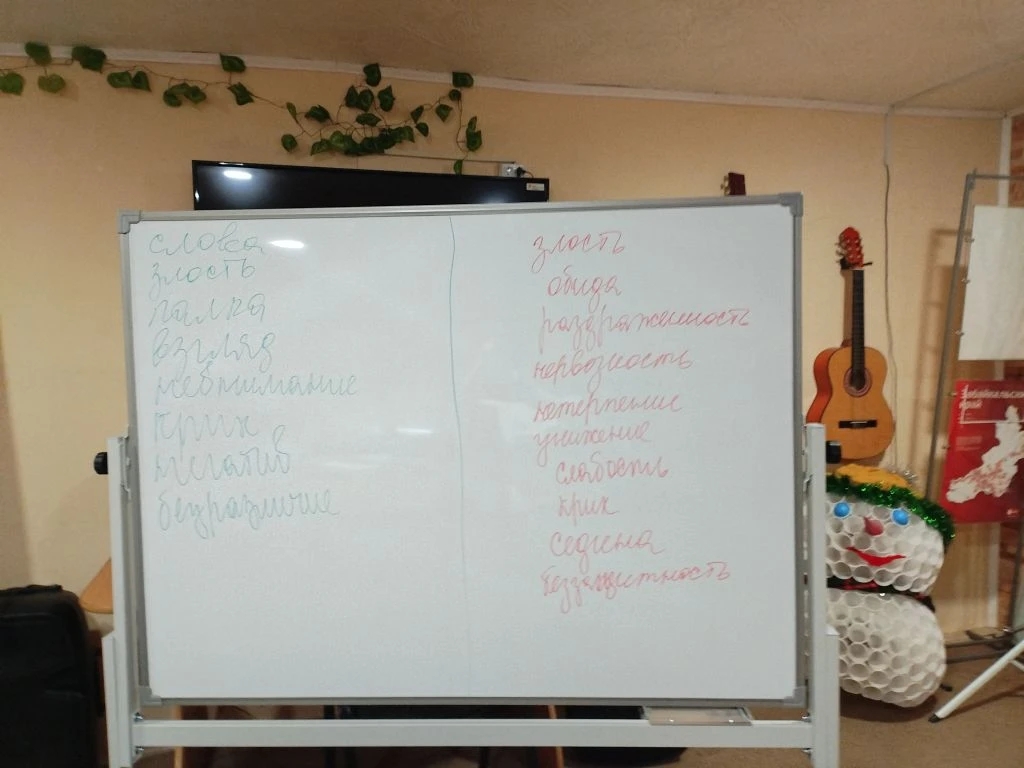 слова
злость
палка
взгляд
невнимание
крик
негатив
безразличие
злость
обида
раздраженность
нервозность
нетерпение
унижение
слабость
крик
седина
беззащитность
Забайкальский
край